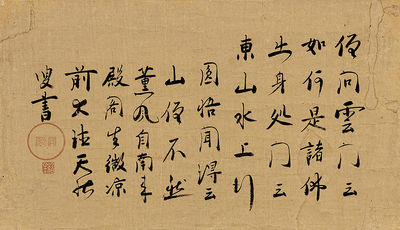 僧問雲門云
如何是諸佛
出身处門云
東山水上行
圓悟聞得云
山僧不然
薫风自南来
殿阁生微凉
前大徳天祐
叟書